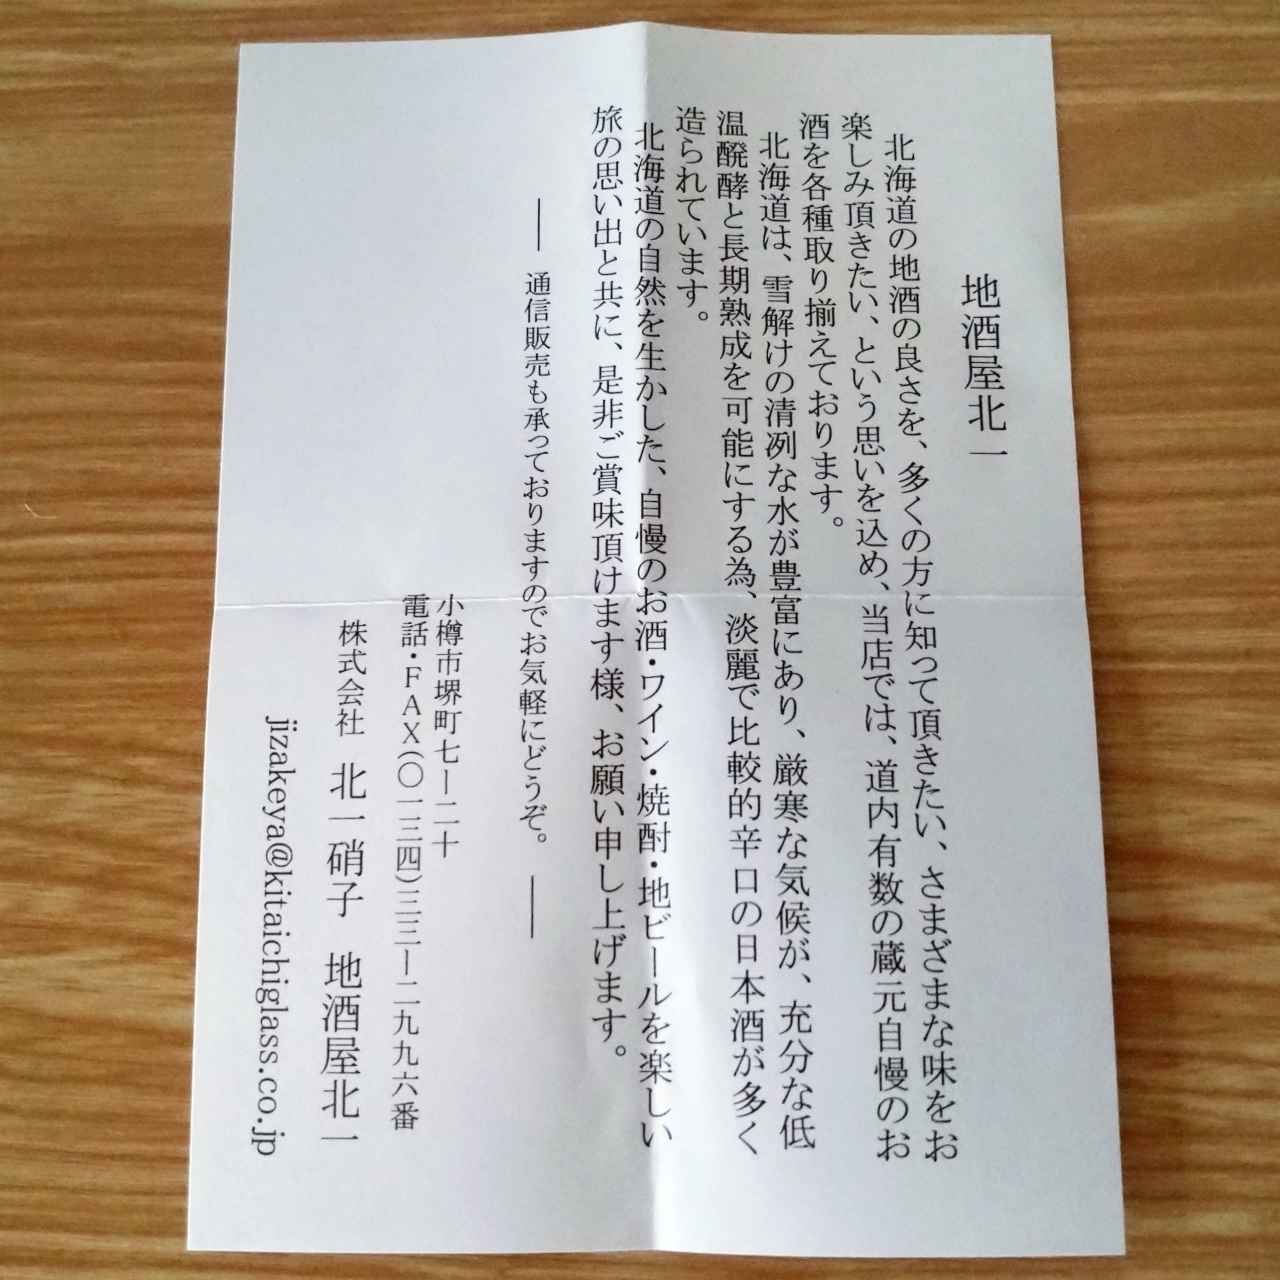 地酒屋北一
北海道の地酒の良さを、多くの方に知って頂きたい、さまざまな味をお
楽しみ頂きたい、という思いを込め、当店では、道内有数の蔵元自慢のお
酒を各種取り揃えております。
北海道は、雪解けの清冽な水が豊富にあり、厳寒な気候が、充分な低
温醗酵と長期熟成を可能にする為、淡麗で比較的辛口の日本酒が多く
造られています。
北海道の自然を生かした、自慢のお酒・ワイン・焼酎・地ビールを楽しい
旅の思い出と共に、是非ご賞味頂けます様、お願い申し上げます。
―― 通信販売も承っておりますのでお気軽にどうぞ。 ――
小樽市堺町七ー二十
電話・ＦＡＸ(〇一三四)三三ー二九九六番
株式会社 北一硝子 地酒屋北一
jizakeya@kitaichiglass.co.jp